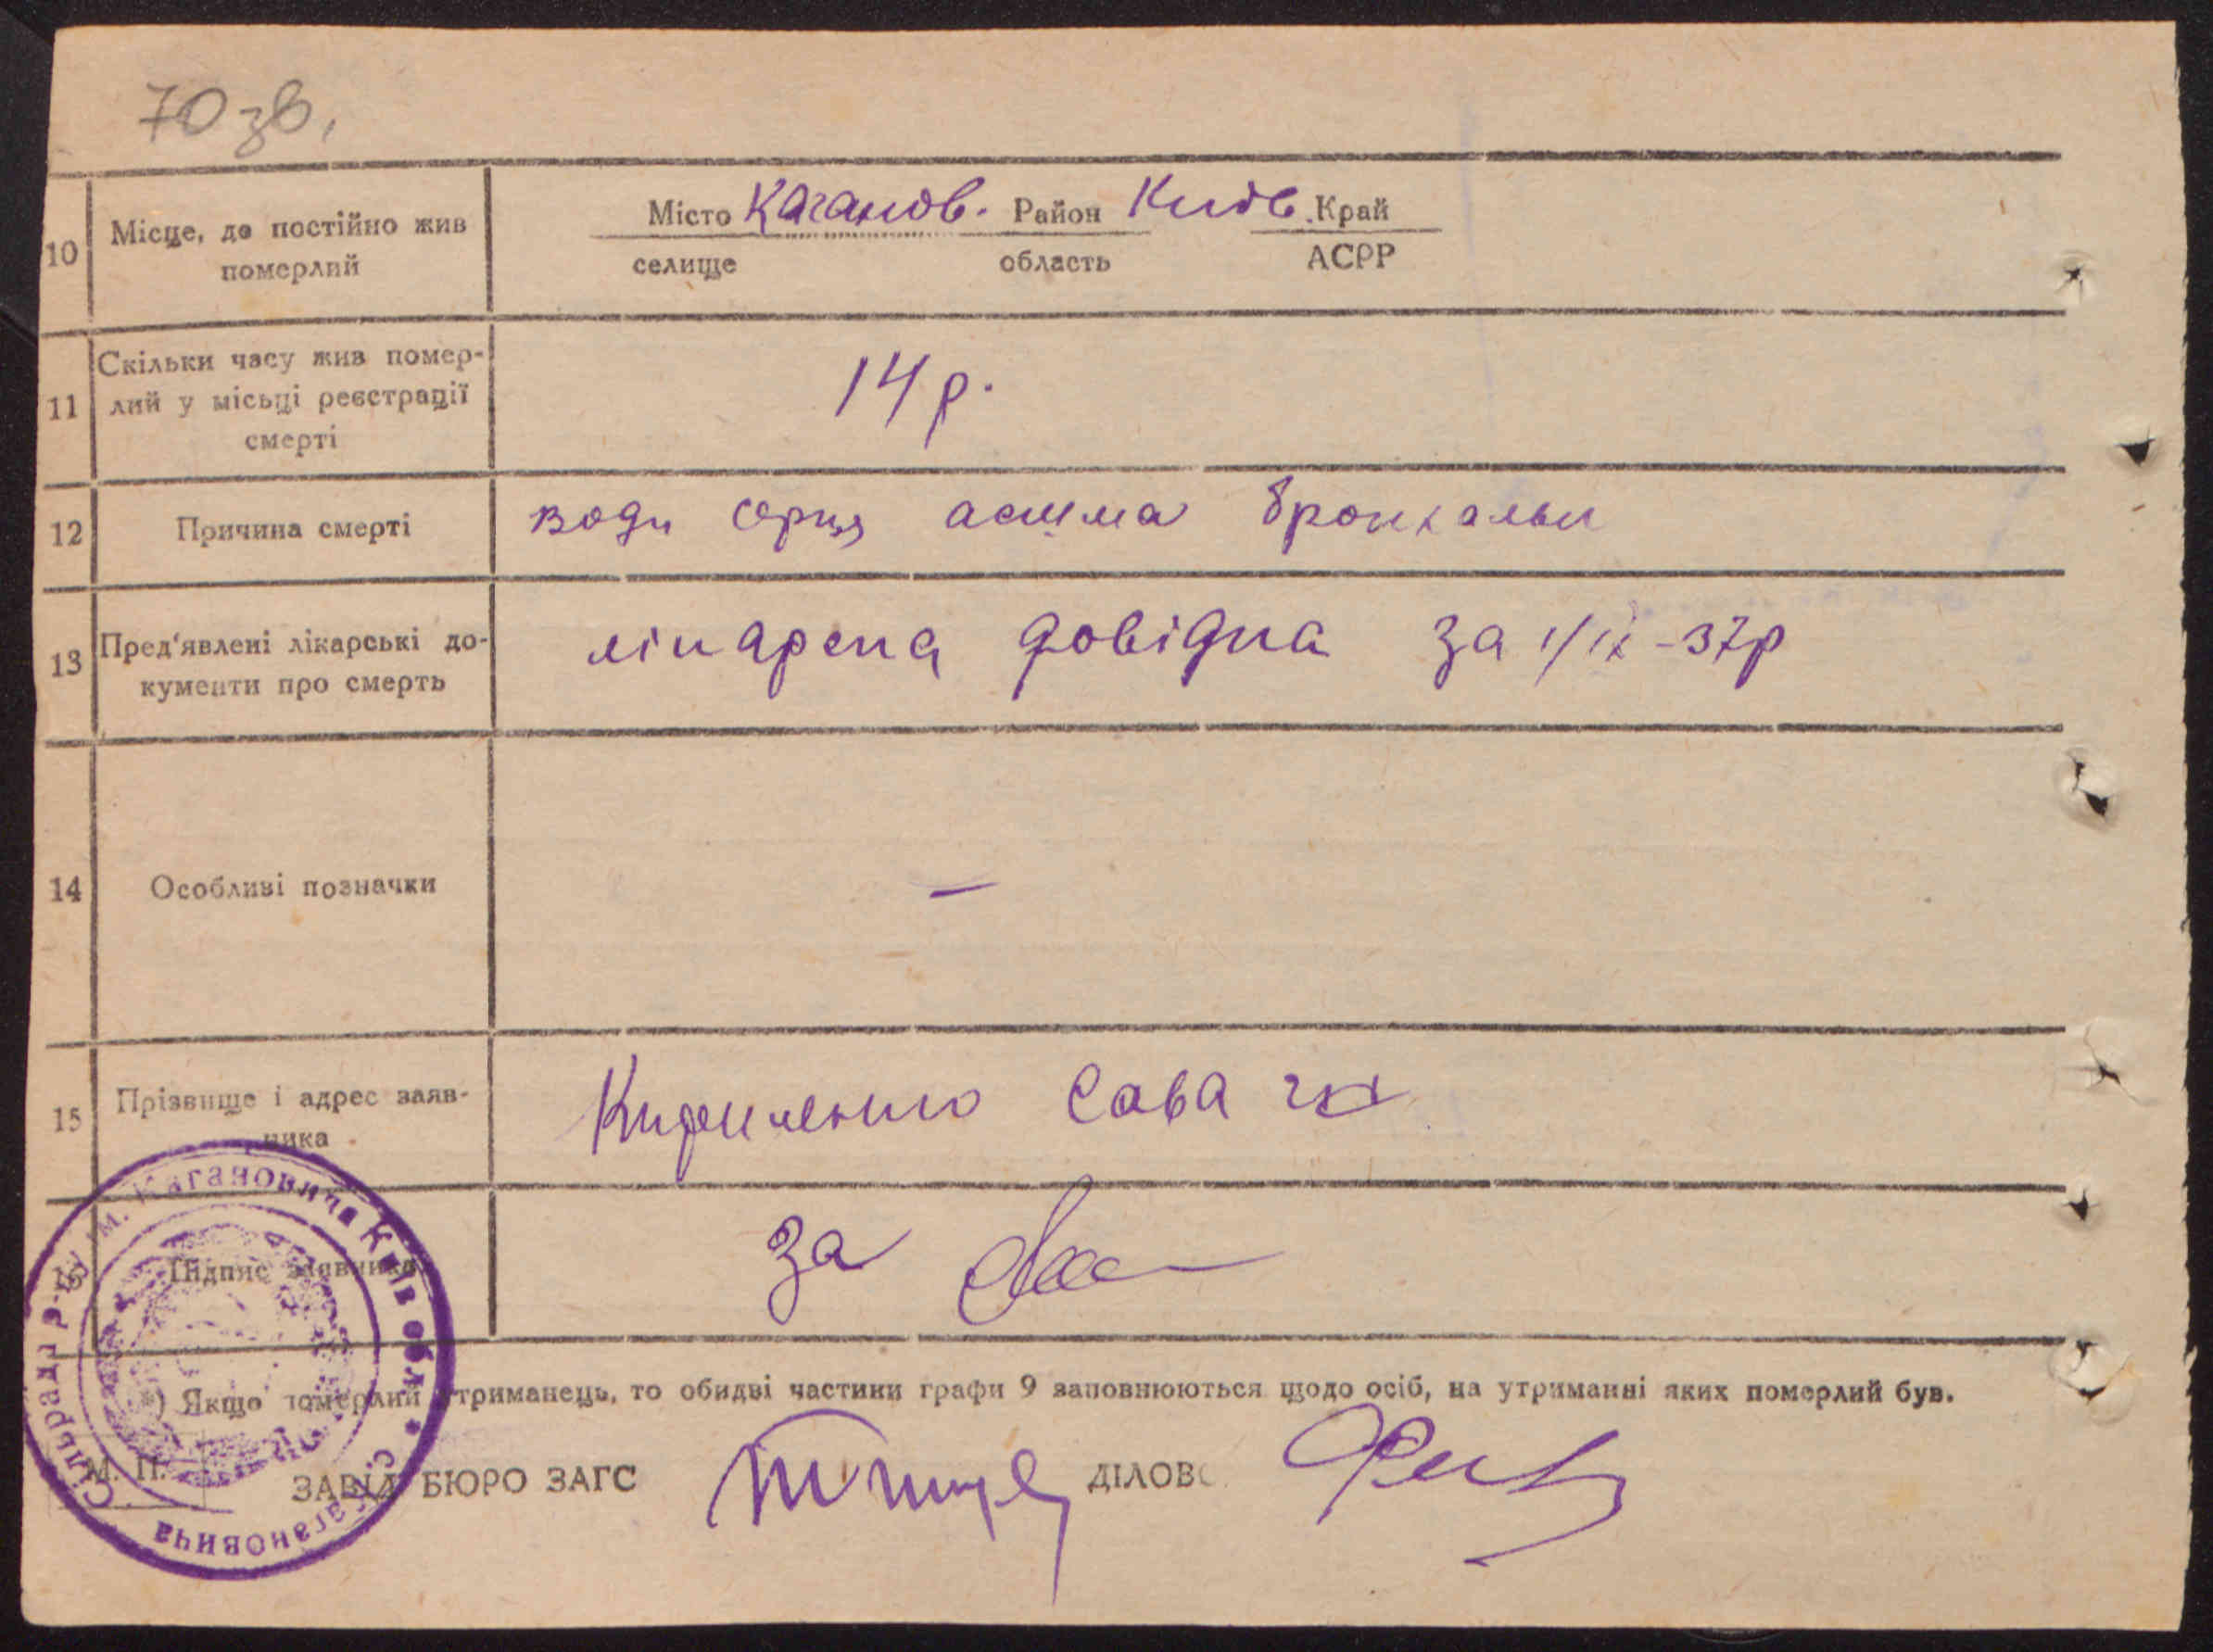 70 зв.
10 Місце, де постійно жив
померлий
Місто Каганов. Район Київ. Край
селище область АСРР
11 Скільки часу жив помер-
лий у місьці реєстрації
смерті
14 р.
12 Причина смерті
води серця астма бронхальн
13 Пред'явлені лікарські до-
кументи про смерть
лікарска довідка за 1/IX-37р
14 Особливі позначки
—
15 Прізвище і адрес заяв-
ника
Кириленко Сава
16 Підпис заявника
За
*) Якщо померлий утриманець, то обидві частини графи 9 заповнюються щодо осіб, на утриманні яких померлий був.
М. П.
ЗАВІД БЮРО ЗАГС ДІЛОВ
Сільрада р-ну ім. Кагановича Київ обл. * с. Кагановича